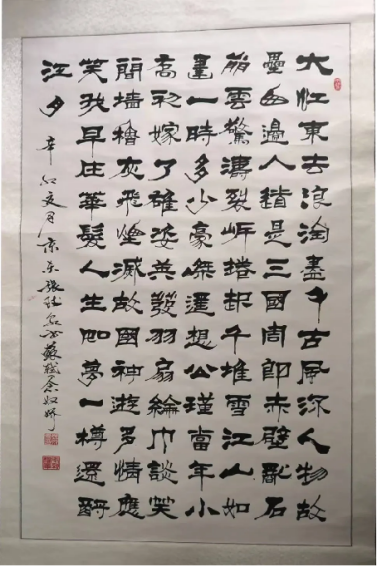 大江東去浪淘盡千古風流人物故
壘西邊人道是三國周郎赤壁亂石
崩雲驚濤裂岸捲起千堆雪江山如
畫一時多少豪傑遙想公瑾當年小
喬初嫁了雄姿英發羽扇綸巾談笑
間墻櫓灰飛煙滅故國神遊多情應
笑我早生華髮人生如夢一樽還酹
江月
辛卯夏月京東張書蘇軾念奴嬌